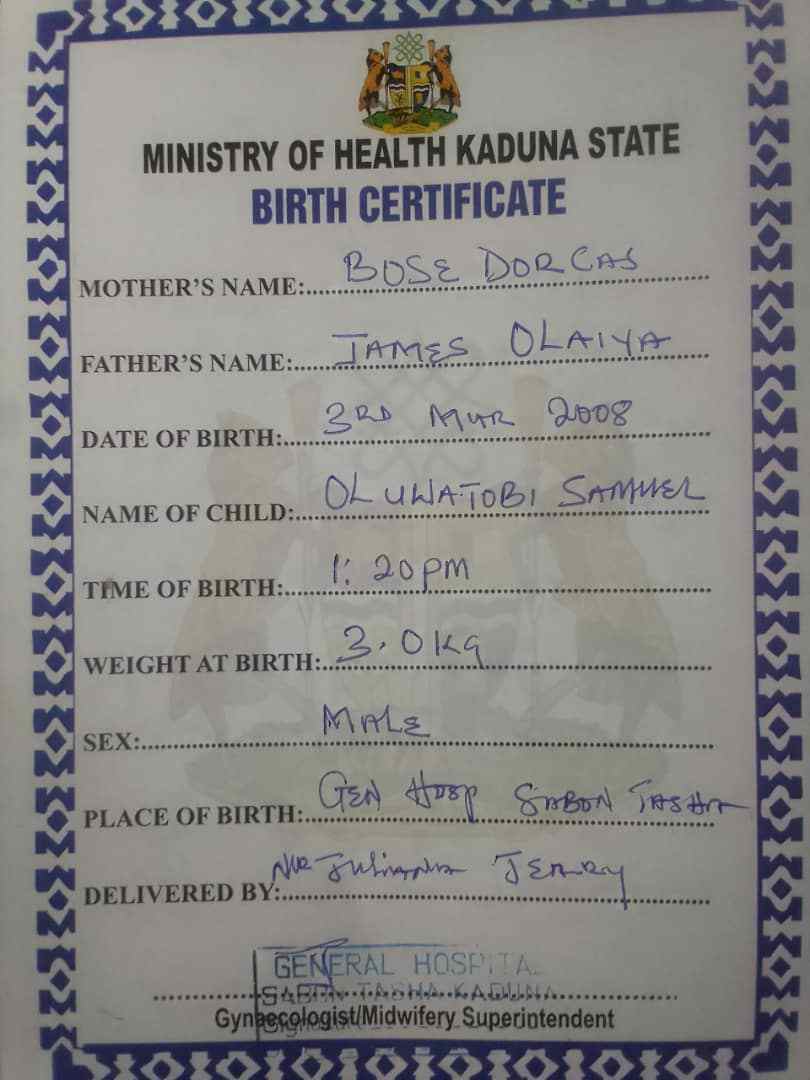 MINISTRY OF HEALTH KADUNA STATE
BIRTH CERTIFICATE
MOTHER'S NAME: BOSE DORCAS
FATHER'S NAME: JAMES OLAIYA
DATE OF BIRTH: 3RD MAR 2008
NAME OF CHILD: OLUWATOBI SAMUEL
TIME OF BIRTH: 1:20PM
WEIGHT AT BIRTH: 3.0KG
SEX: MALE
PLACE OF BIRTH: GEN HOSP SABON TASHA
DELIVERED BY: Juliana JERRY
GENERAL HOSPITA
SABON TASHA KADUNA
Gynaecologist/Midwifery Superintendent